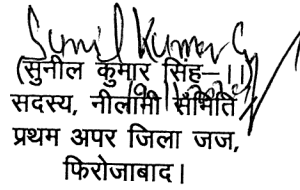 Sunil Kumar
(सुनील कुमार सिंह-।।)
सदस्य, नीलामी समिति
प्रथम अपर जिला जज,
फिरोजाबाद।